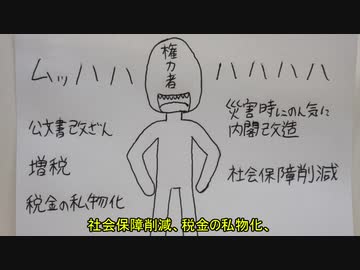 ムッハハ ハハハハ
権力者
公文書改ざん
増税
税金の私物化
災害時にのん気に
内閣改造
社会保障削減
社会保障削減、税金の私物化、